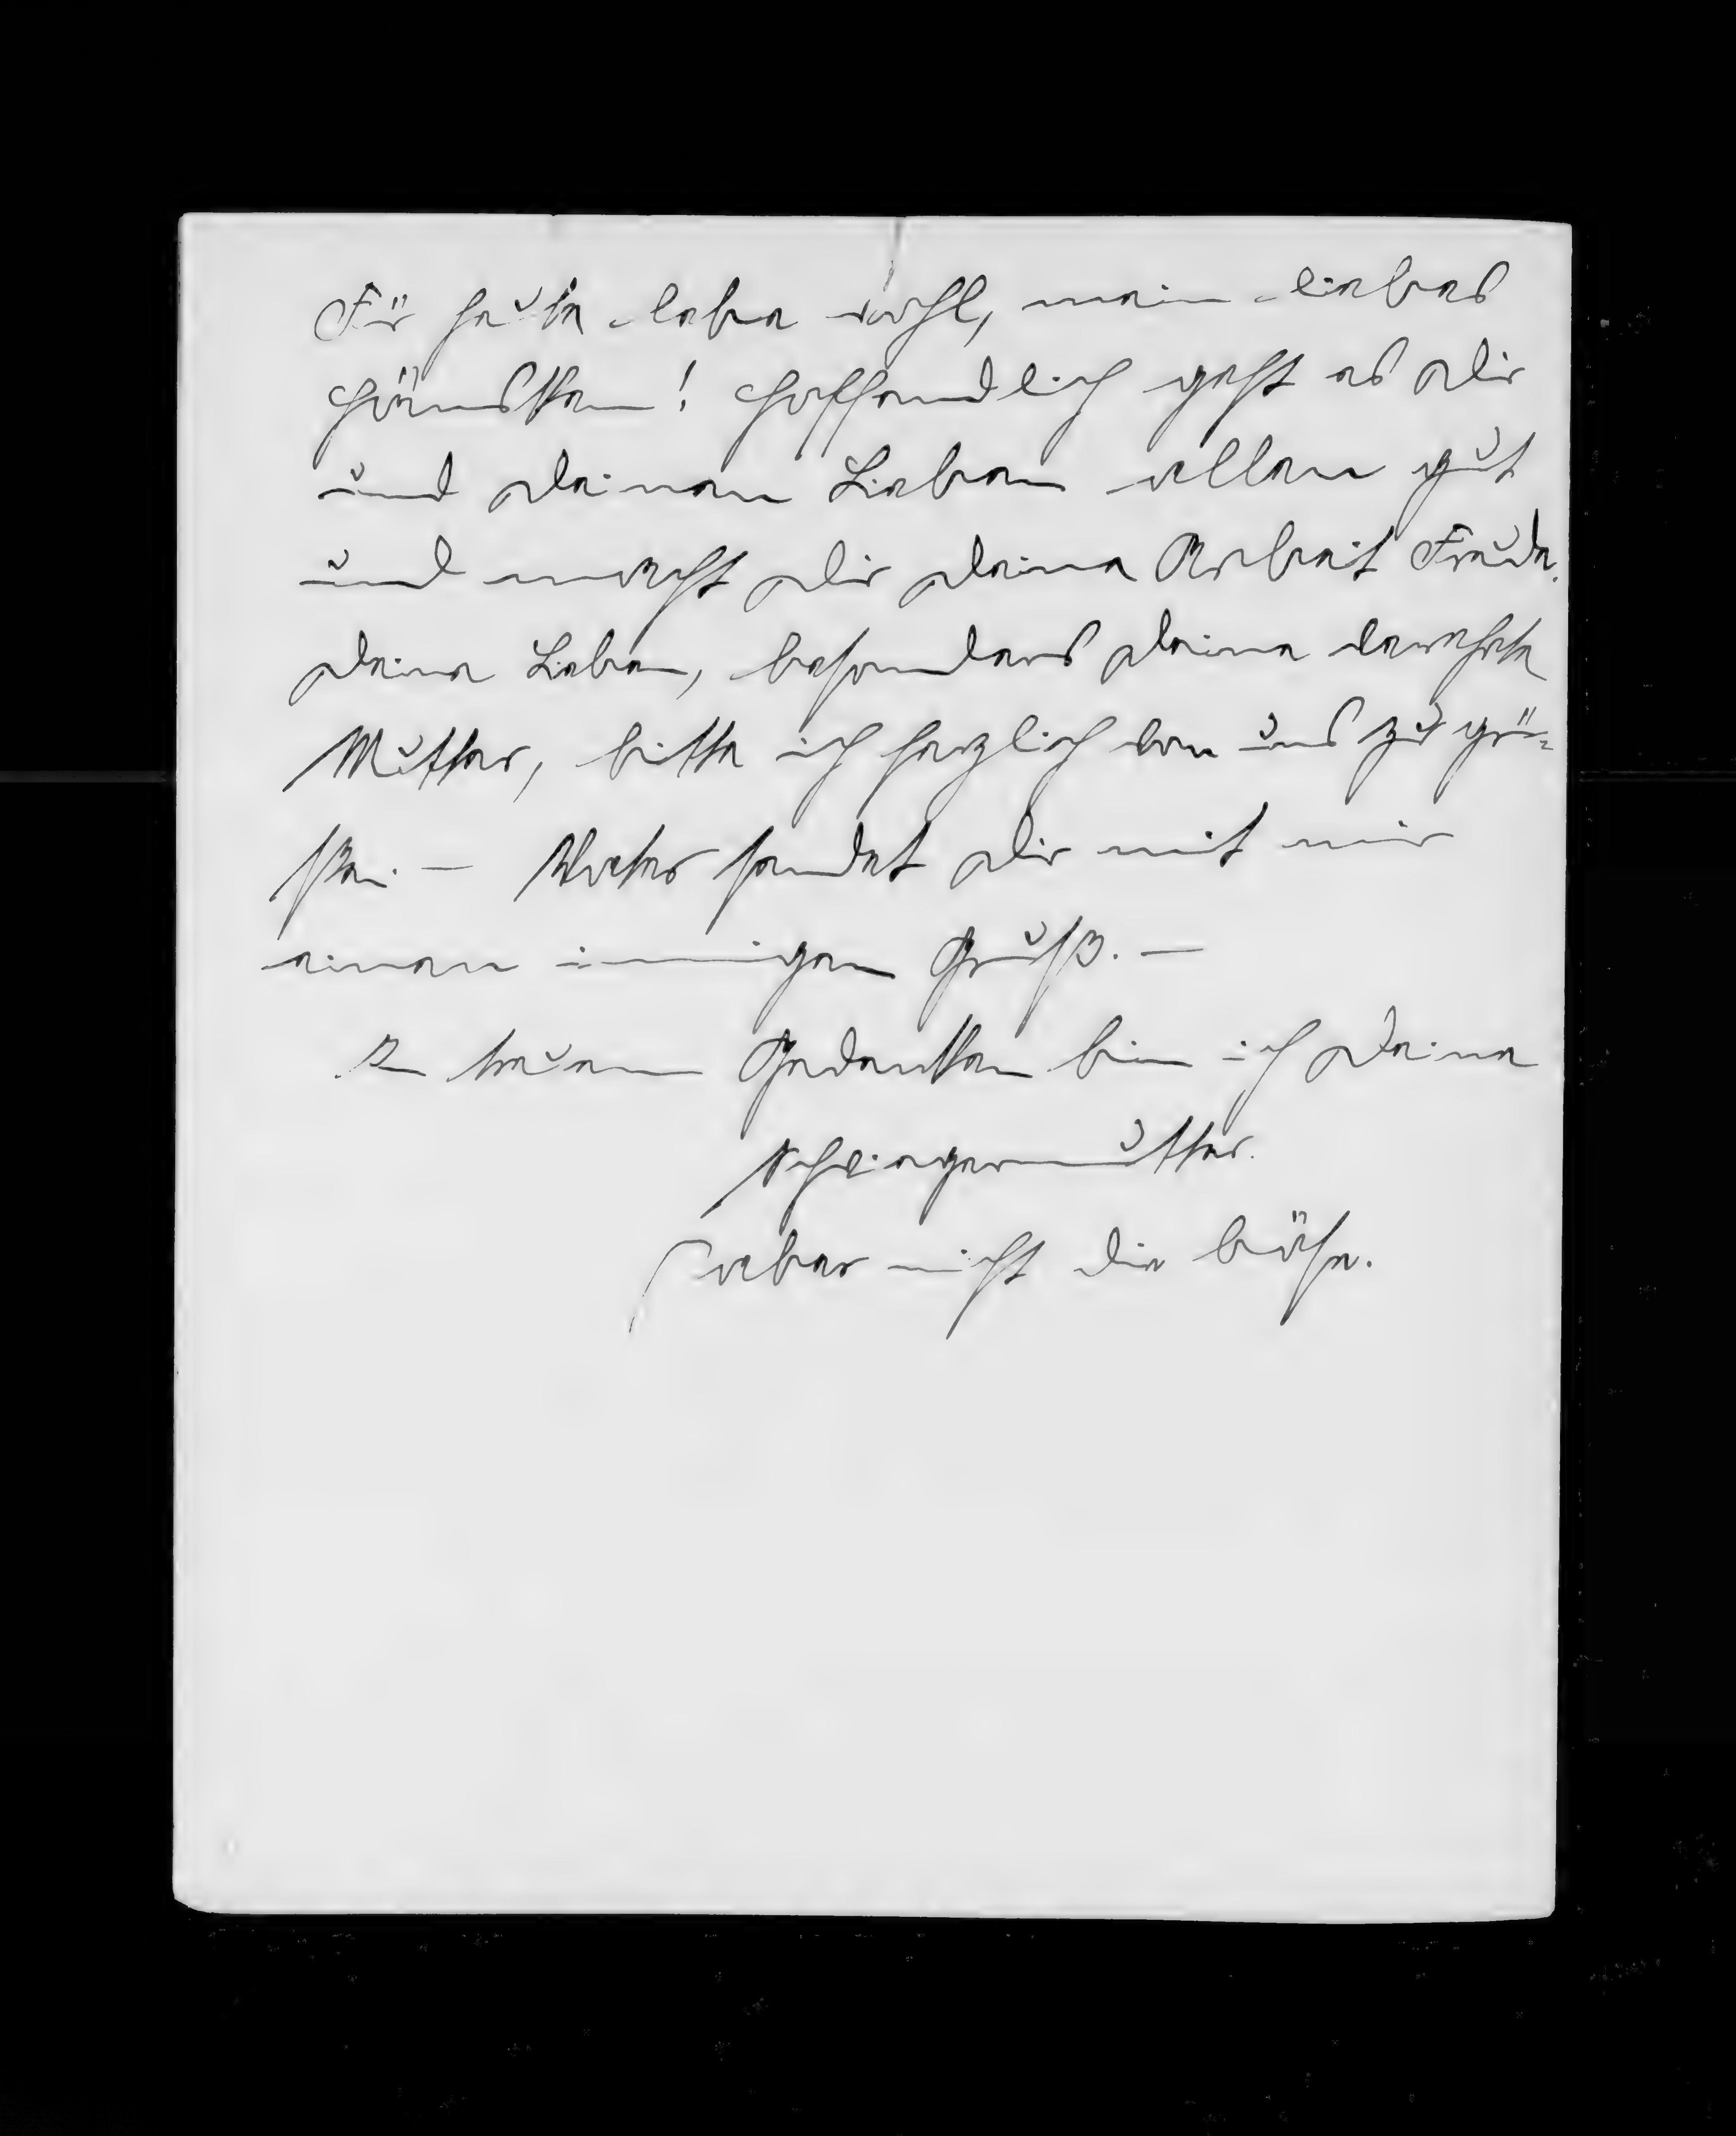 Für heute lebe wohl, mein liebes
Hännschen! Hoffendlich geht es Dir
und Deinen Lieben allen gut
und macht Dir Deine Arbeit Freude.
Deine Lieben, besonders Deine verehrte
Mutter, bitte ich herzlich von uns zu grü-
ßen. — Vater sendet Dir mit mir
einen innigen Gruß. —
In treuem Gedenken bin ich Deine
Schwiegermutter.
aber nicht die böse.